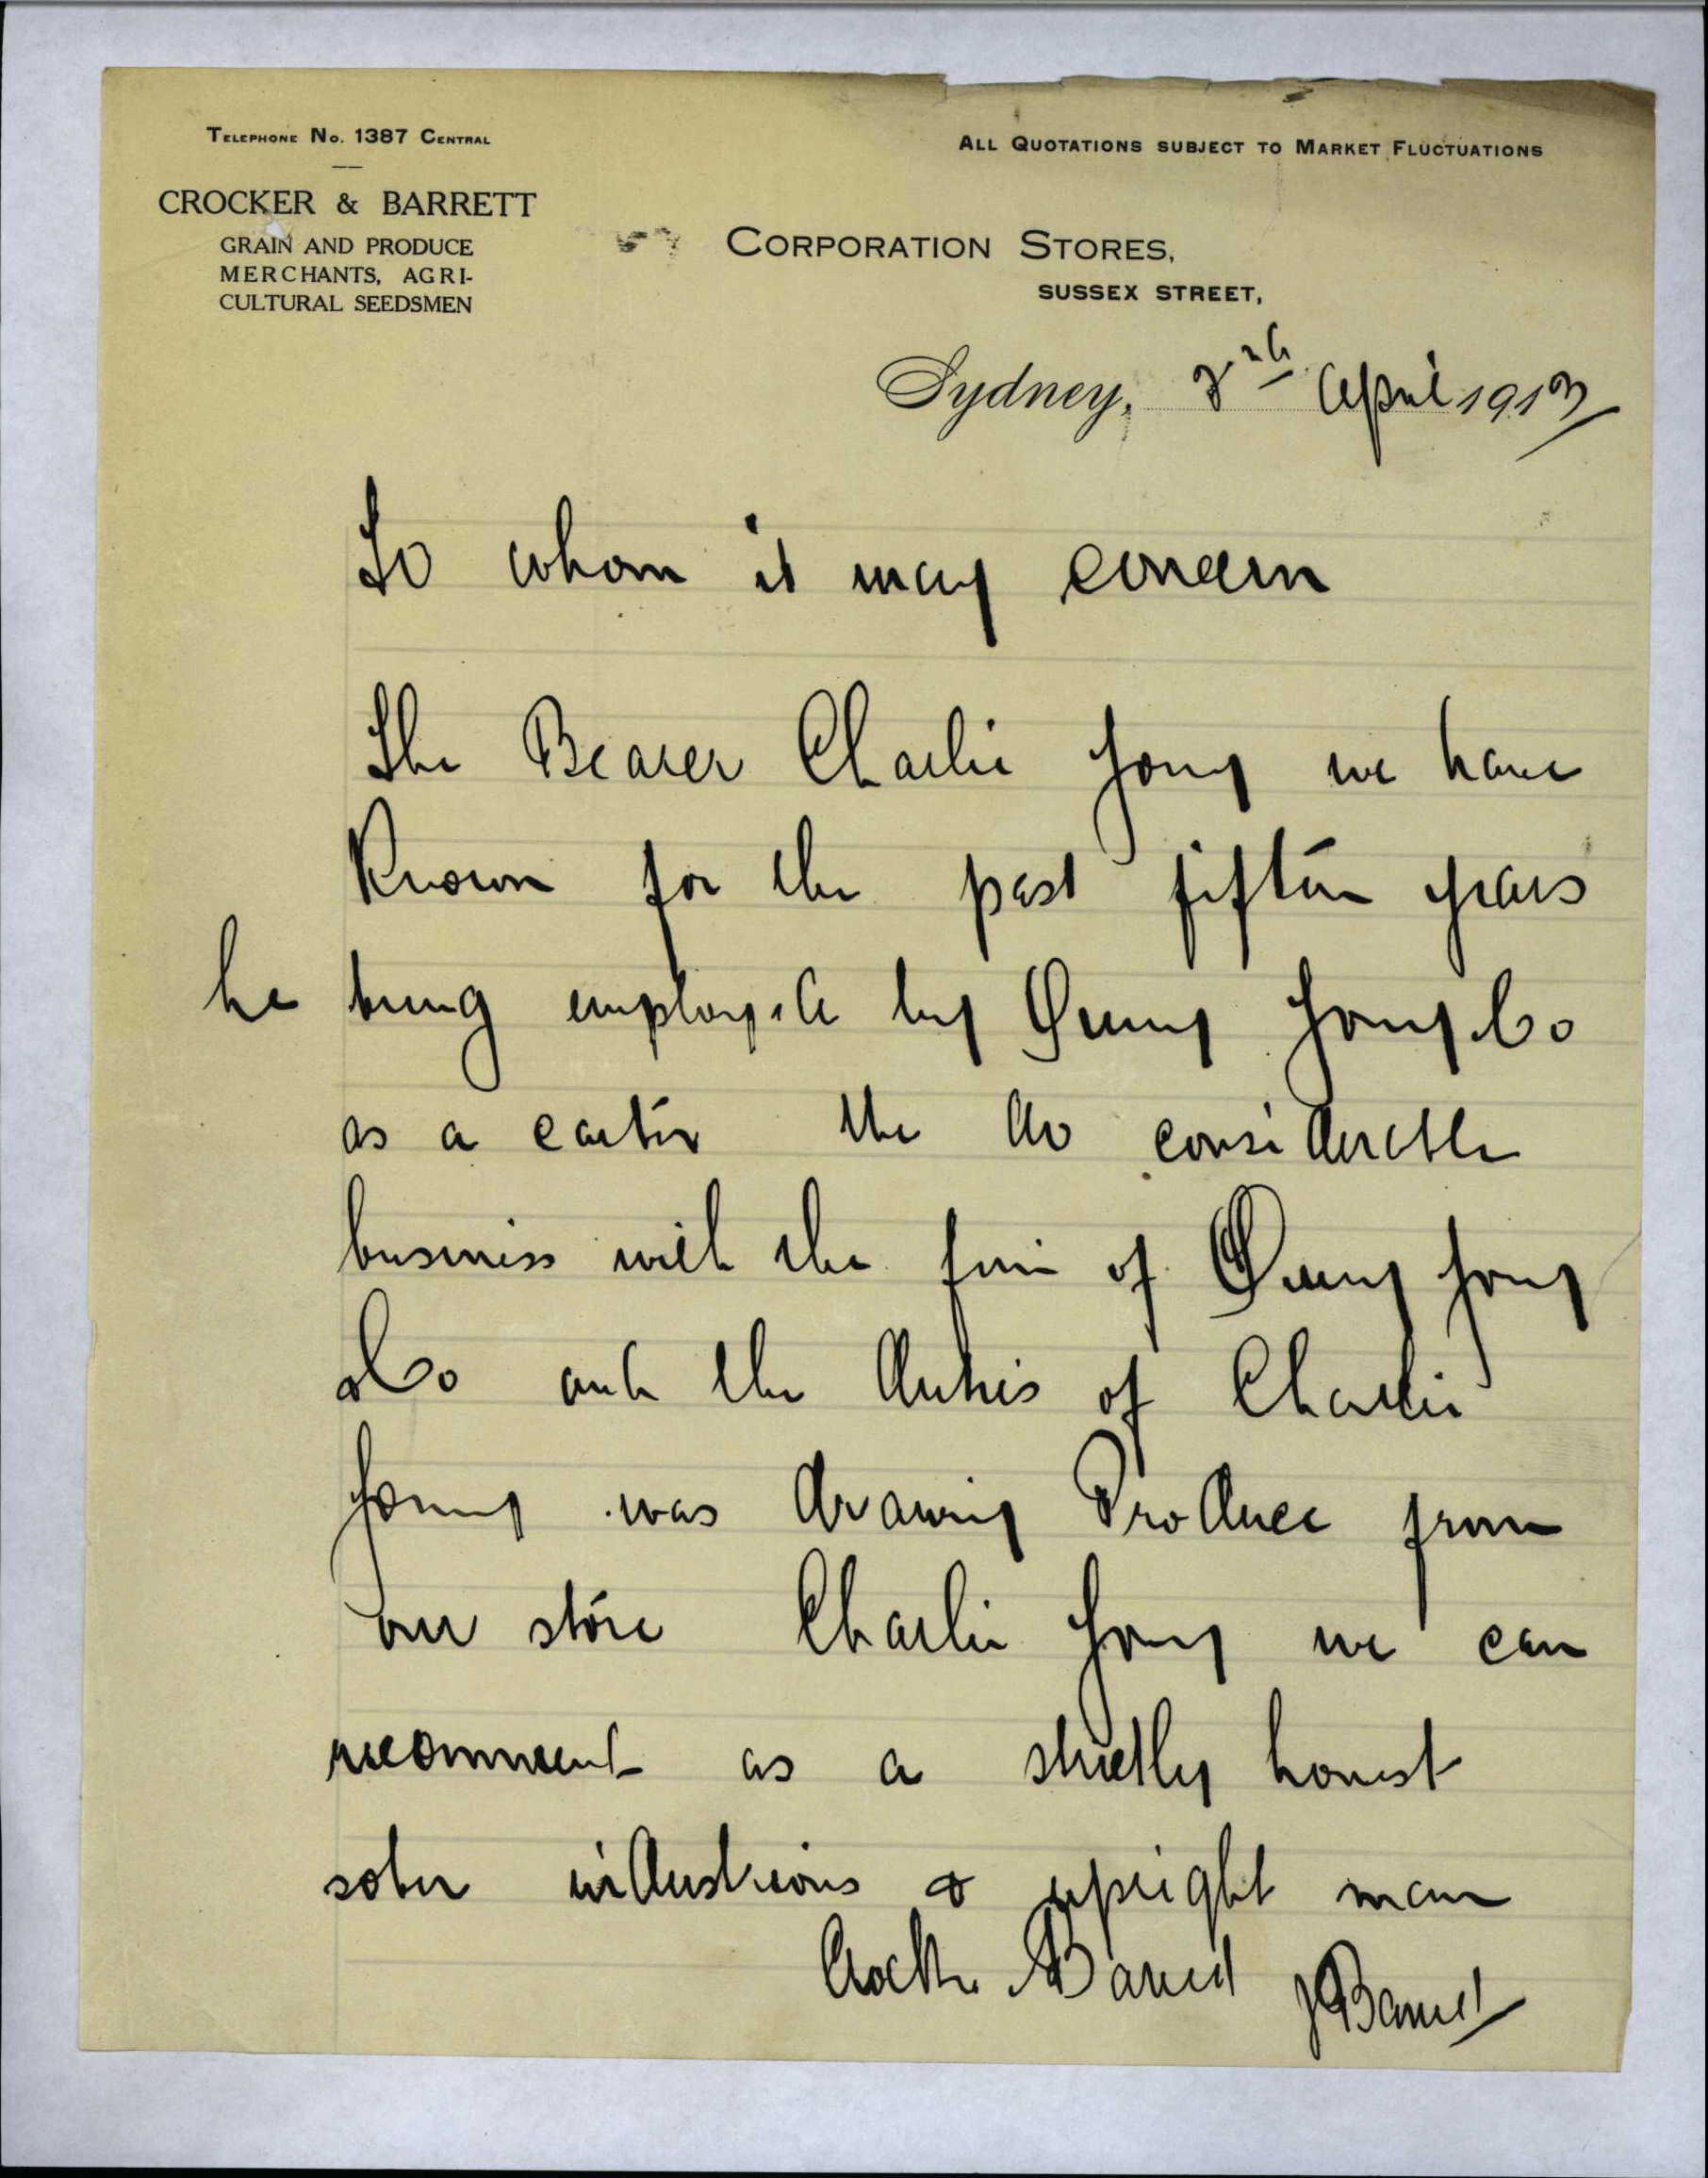 TELEPHONE No. 1387 CENTRAL
ALL QUOTATIONS SUBJECT TO MARKET FLUCTUATIONS
CROCKER & BARRETT
GRAIN AND PRODUCE
MERCHANTS, AGRI-
CULTURAL SEEDSMEN
CORPORATION STORES,
SUSSEX STREET,
Sydney, April 1913
To whom it may concern
The Bearer Charlie Jong we have
Known for the past fifteen years
he being employed by Quong Jong Co
as a carter We do considerable
business with the firm of Quong Jong
& Co and the duties of Charlie
Jong was drawing Produce from
our store Charlie Jong we can
recommend as a strictly honest
sober industrious & upright man
Crocker & Barrett J Barrett